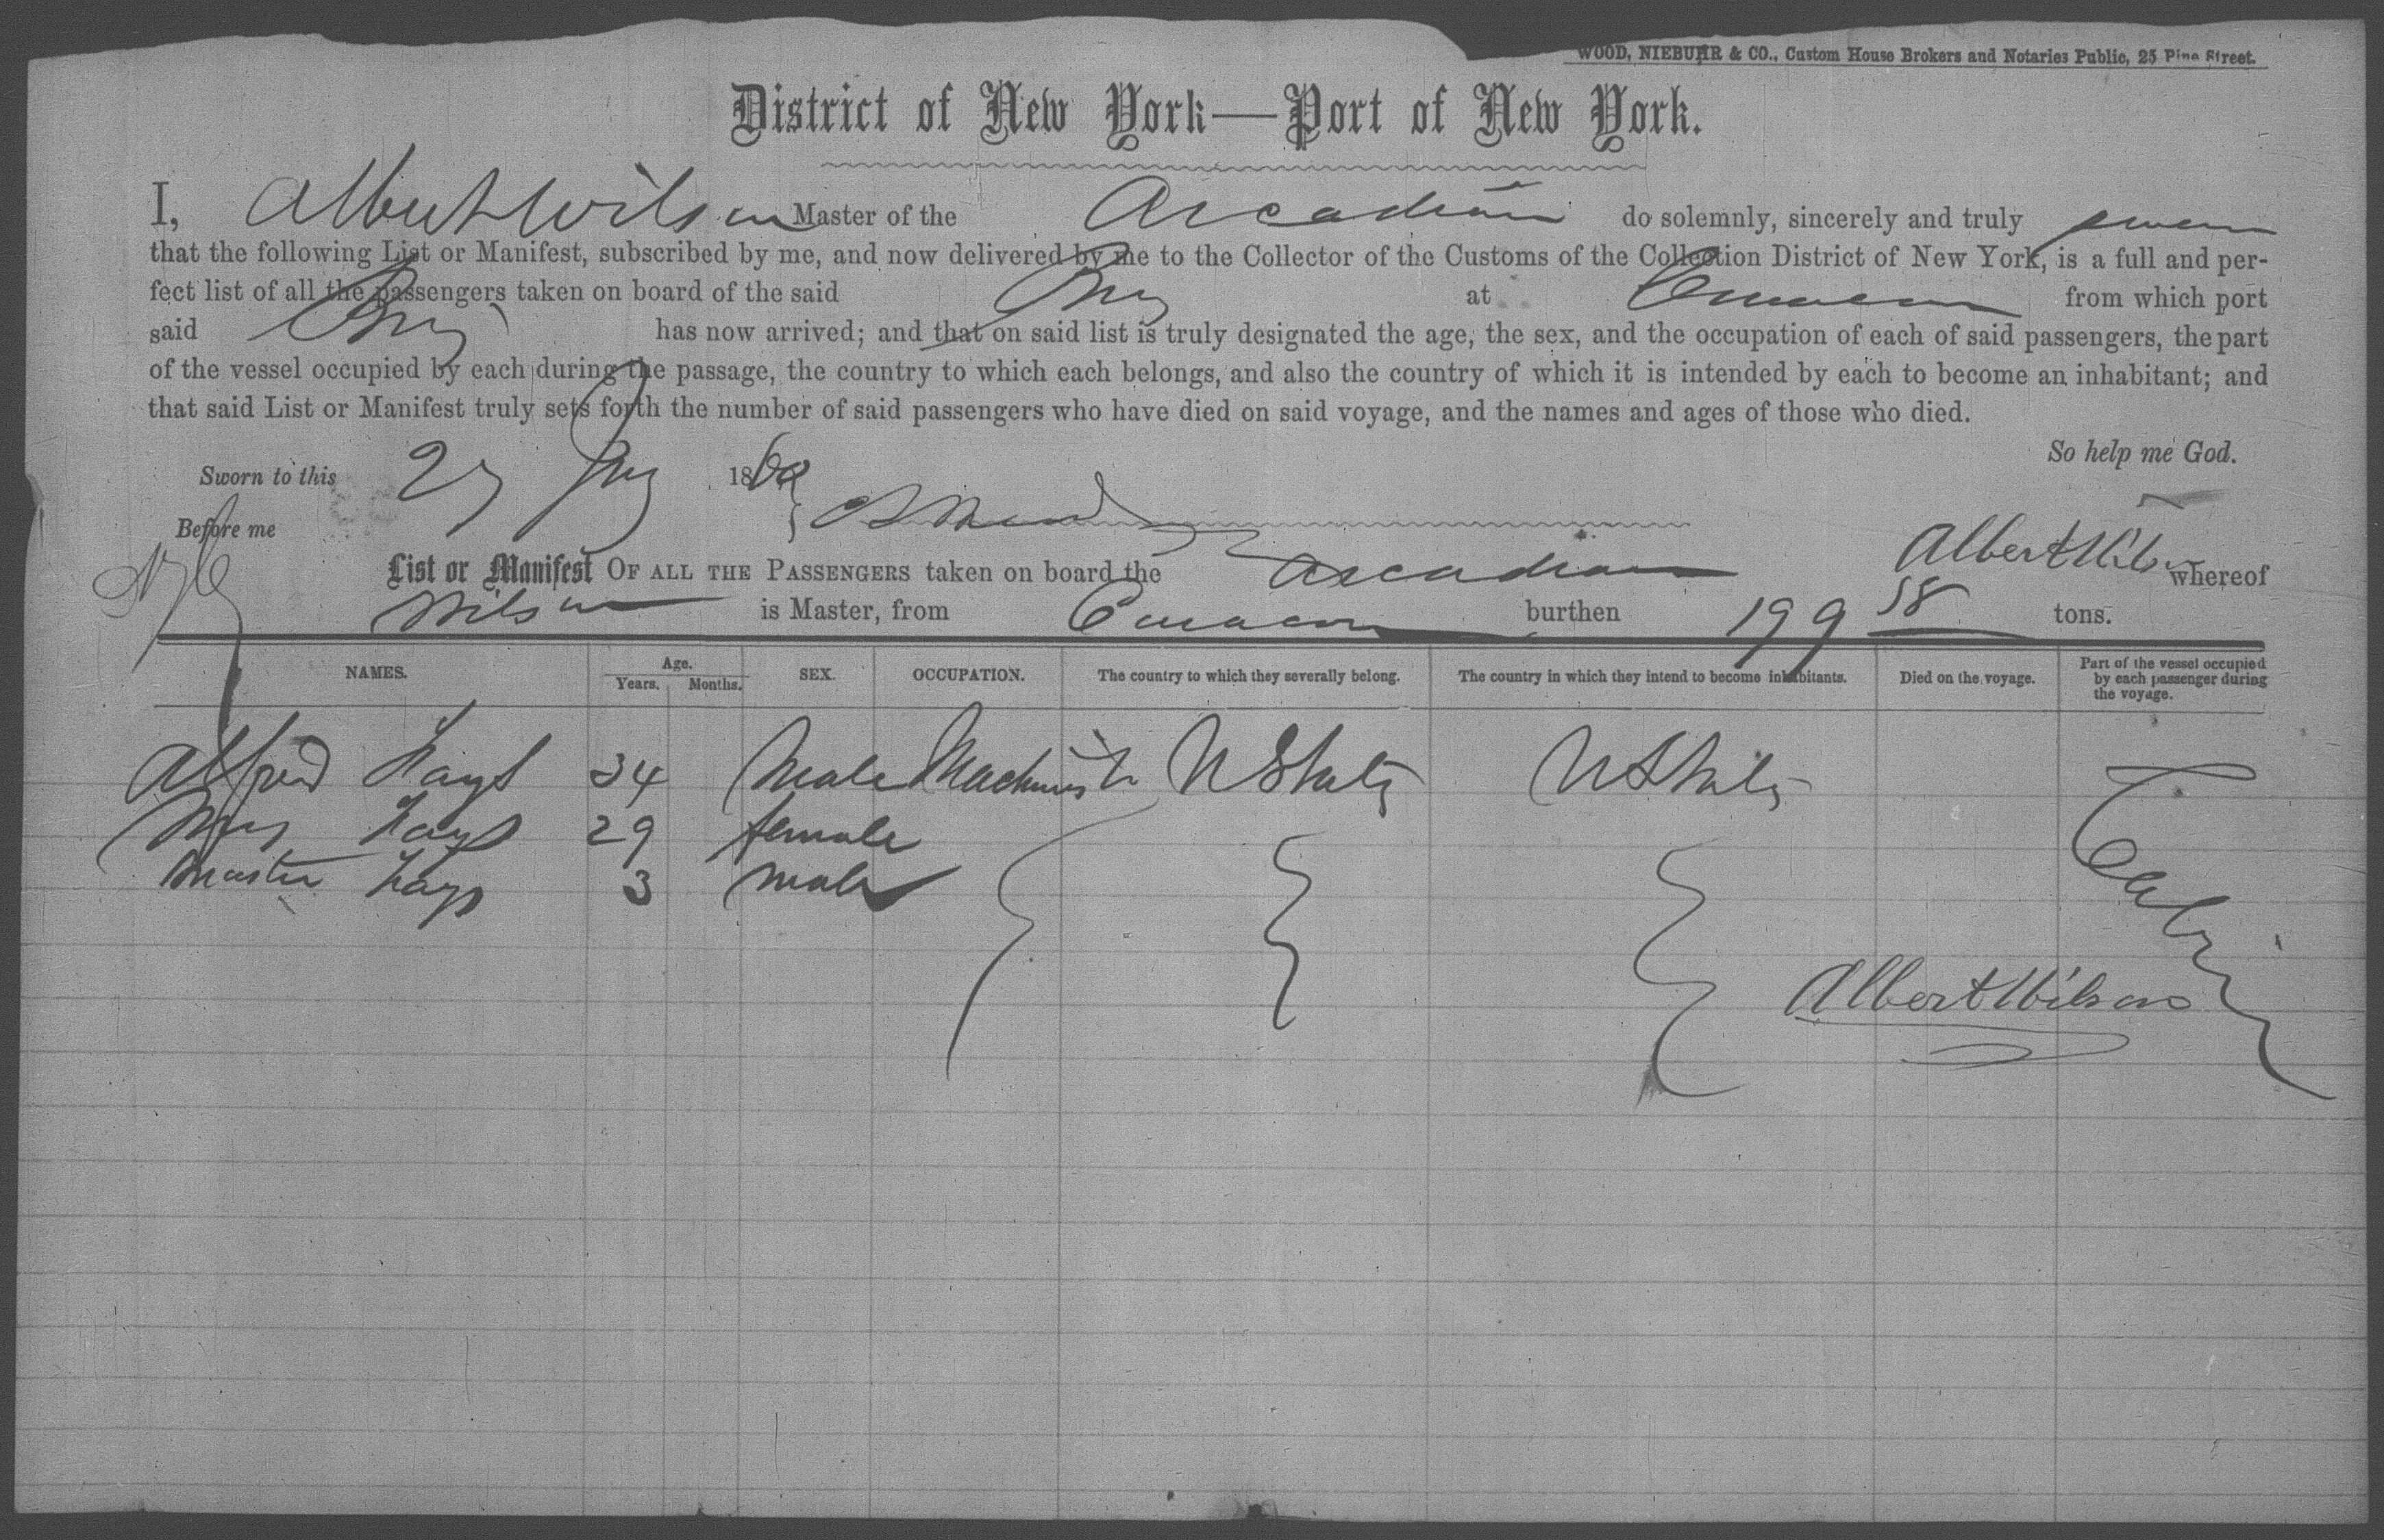 WOOD, NIEBUHR & CO., Custom House Brokers and Notaries Public, 25 Pine Street.
District of New York—Port of New York.
I, Albert Wilson Master of the Arcadian do solemnly, sincerely and truly swear
that the following List or Manifest, subscribed by me, and now delivered by me to the Collector of the Customs of the Collection District of New York, is a full and per-
fect list of all the passengers taken on board of the said Brig at Curacao from which port
said Brig has now arrived; and that on said list is truly designated the age, the sex, and the occupation of each of said passengers, the part
of the vessel occupied by each during the passage, the country to which each belongs, and also the country of which it is intended by each to become an inhabitant; and
that said List or Manifest truly sets forth the number of said passengers who have died on said voyage, and the names and ages of those who died.
So help me God.
Sworn to this 27 186
Before me
Albert Wilson
List or Manifest OF ALL THE PASSENGERS taken on board the Arcadian whereof
Wilson is Master, from Curacao burthen 199 58 tons.
NAMES. Age. Years. Months. SEX. OCCUPATION. The country to which they severally belong. The country in which they intend to become inhabitants. Died on the voyage. Part of the vessel occupied by each passenger during the voyage.
Alfred Hays 34 Male Machinist U States U States Cabin
Mrs Hays 29 female
Master Hays 3 male
Albert Wilson